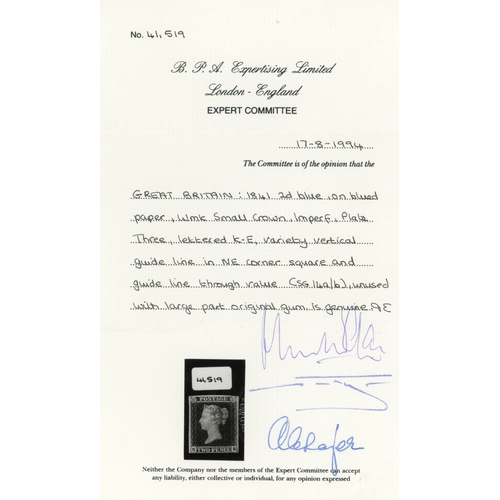 No. 41,519
B. P. A. Expertising Limited
London - England
EXPERT COMMITTEE
17-8-1994
The Committee is of the opinion that the
GREAT BRITAIN: 1841 2d blue, on blued
paper, Wmk Small Crown, Imperf, Plate
Three, lettered K-E, variety vertical
guide line in NE corner square and
guide line through value (SG 14a/b), unused
with large part original gum is genuine.
41519
POSTAGE
TWO PENCE
Neither the Company nor the members of the Expert Committee can accept
any liability, either collective or individual, for any opinion expressed